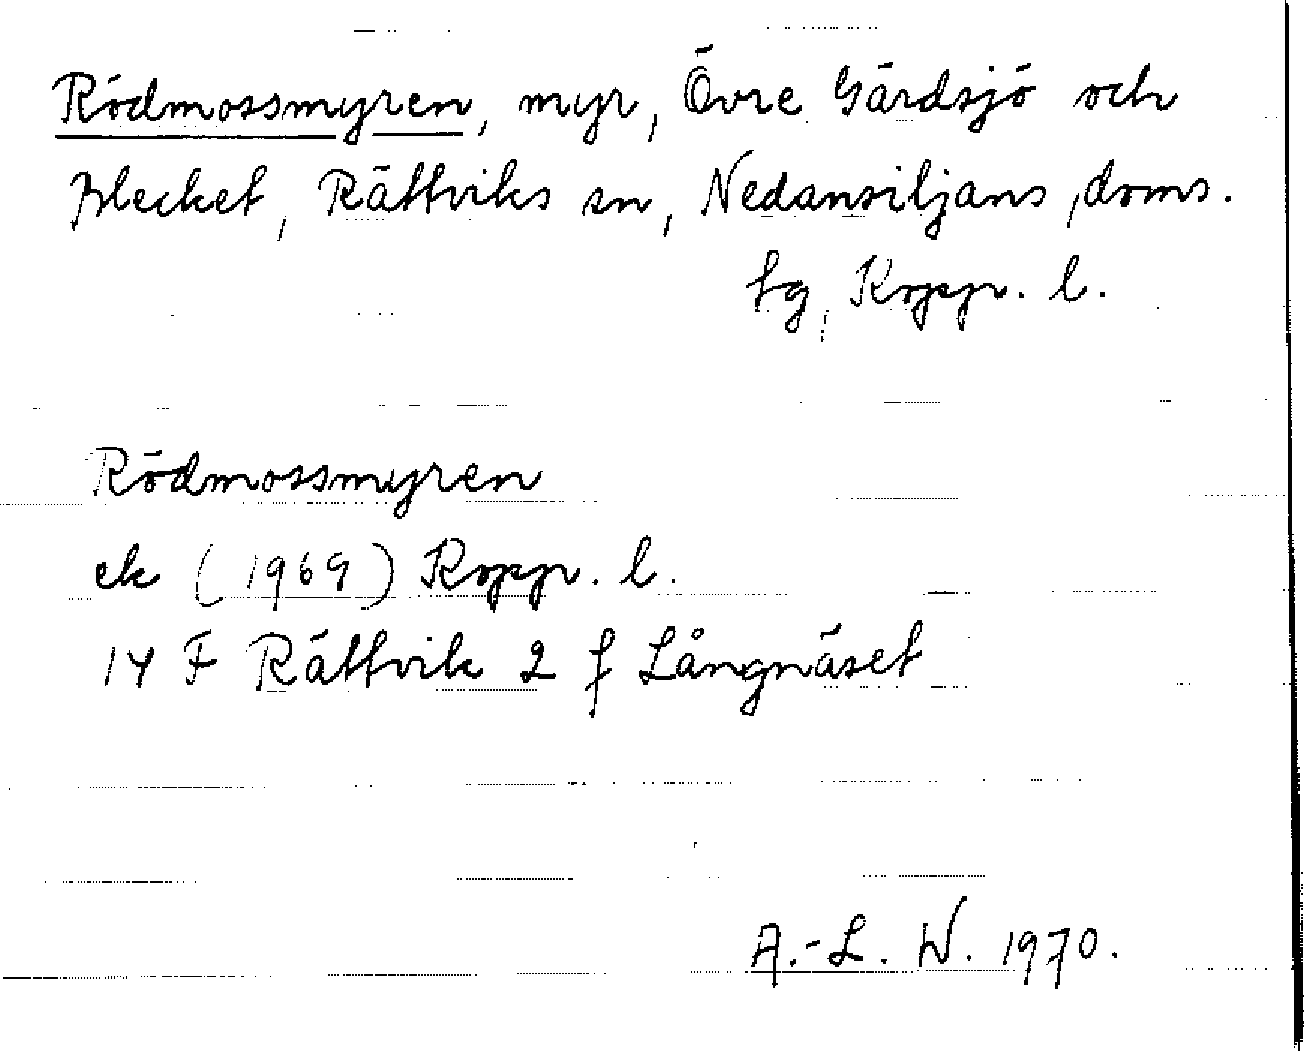 Rödmossmyren, myr, Övre Gärdsjö och
Blecket, Rättviks sn, Nedansiljans doms.
tg, Kopp. l.
Rödmossmyren
ek (1969) Kopp. l.
14 F Rättvik 2 f Långnäset
A.-L. W. 1970.